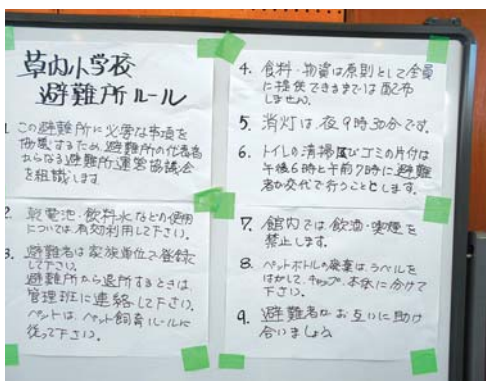 草内小学校
避難所ルール
1 この避難所に必要な事項を
協議するため、避難所の代表者
からなる避難所運営協議会
を組識します
2. 乾電池・飲料水などの使用
については有効利用して下さい。
3. 避難者は家族単位で登録
して下さい。
避難所から退所するときは、
管理班に連絡して下さい。
ペットは、ペット飼育ルールに
従って下さい。
4. 食料・物資は原則として全員
に提供できるまでは配布
しません。
5. 消灯は夜9時30分です。
6. トイレの清掃及びゴミの片付は
午後6時と午前7時に避難
者が交代で行うこととします。
7. 館内では飲酒・喫煙を
禁止します。
8. ペットボトルの廃棄は、ラベルを
はがして、キャップ、本体に分けて
下さい。
9. 避難者がお互いに助け
合いましょう